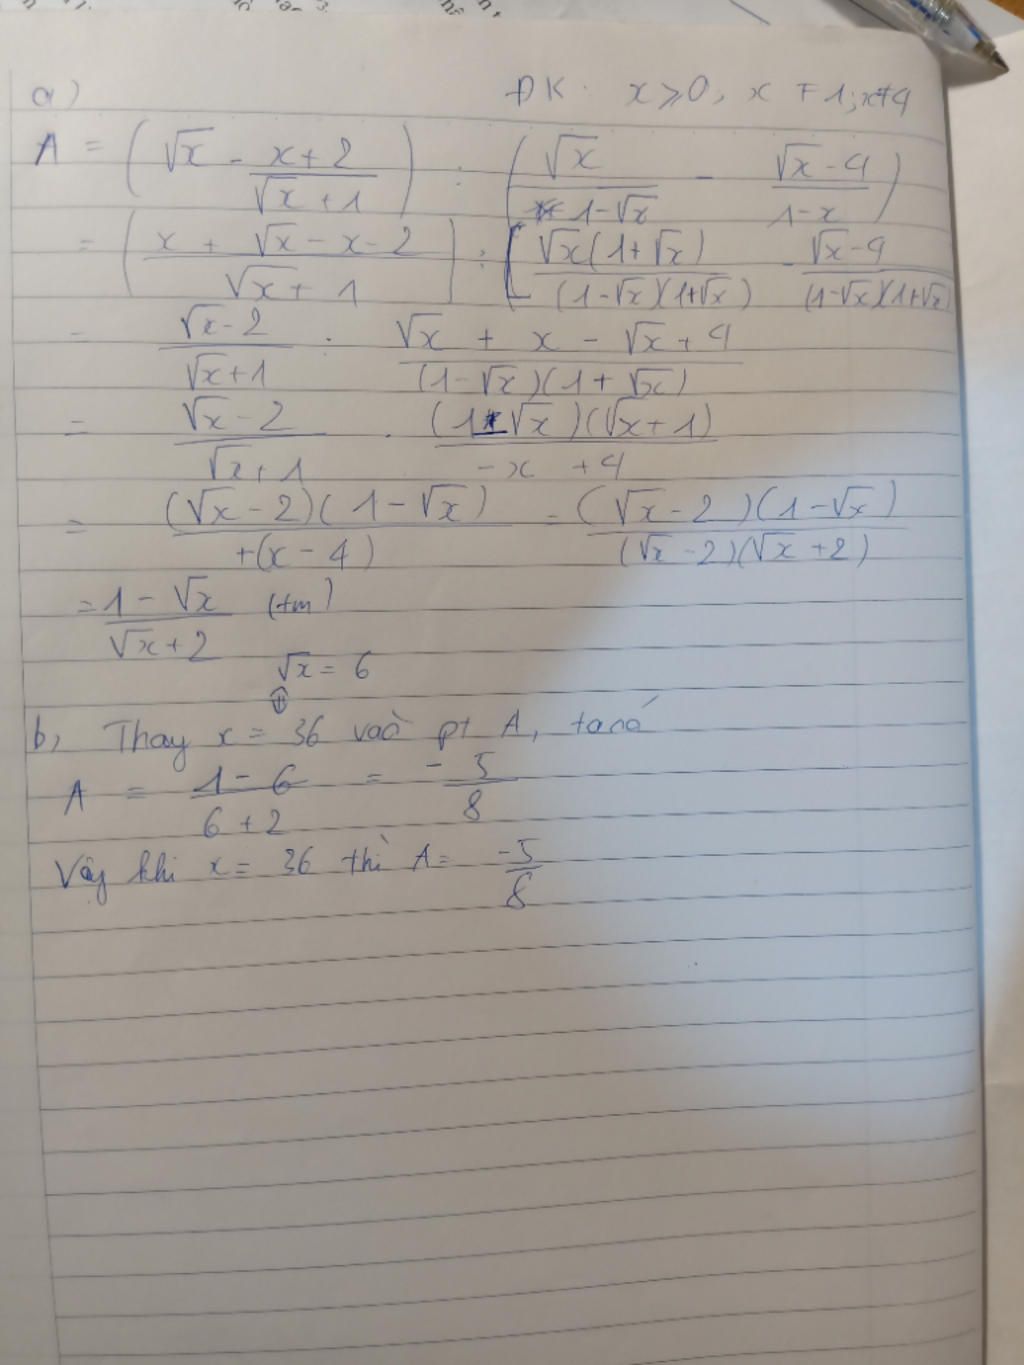 a) ĐK: x ⩾ 0; x ≠ 1; x ≠ 4
A = (√x - (x + 2)/(√x + 1)) : (√x/(1 - √x) - (√x - 4)/(1 - x))
= ((x + √x - x - 2)/(√x + 1)) : [(√x(1 + √x))/((1 - √x)(1 + √x)) - (√x - 4)/((1 - √x)(1 + √x))
= (√x - 2)/(√x + 1) : (√x + x - √x + 4)/((1 - √x)(1 + √x))
= (√x - 2)/(√x + 1) . ((1 - √x)(√x + 1))/(-x + 4)
= ((√x - 2)(1 - √x))/(+(x - 4)) = ((√x - 2)(1 - √x))/((√x - 2)(√x + 2))
= (1 - √x)/(√x + 2) (tm)
√x = 6
⇕
b, Thay x = 36 vaò pt A, ta có
A = (1 - 6)/(6 + 2) = -5/8
Vậy khi x = 36 thì A = -5/8